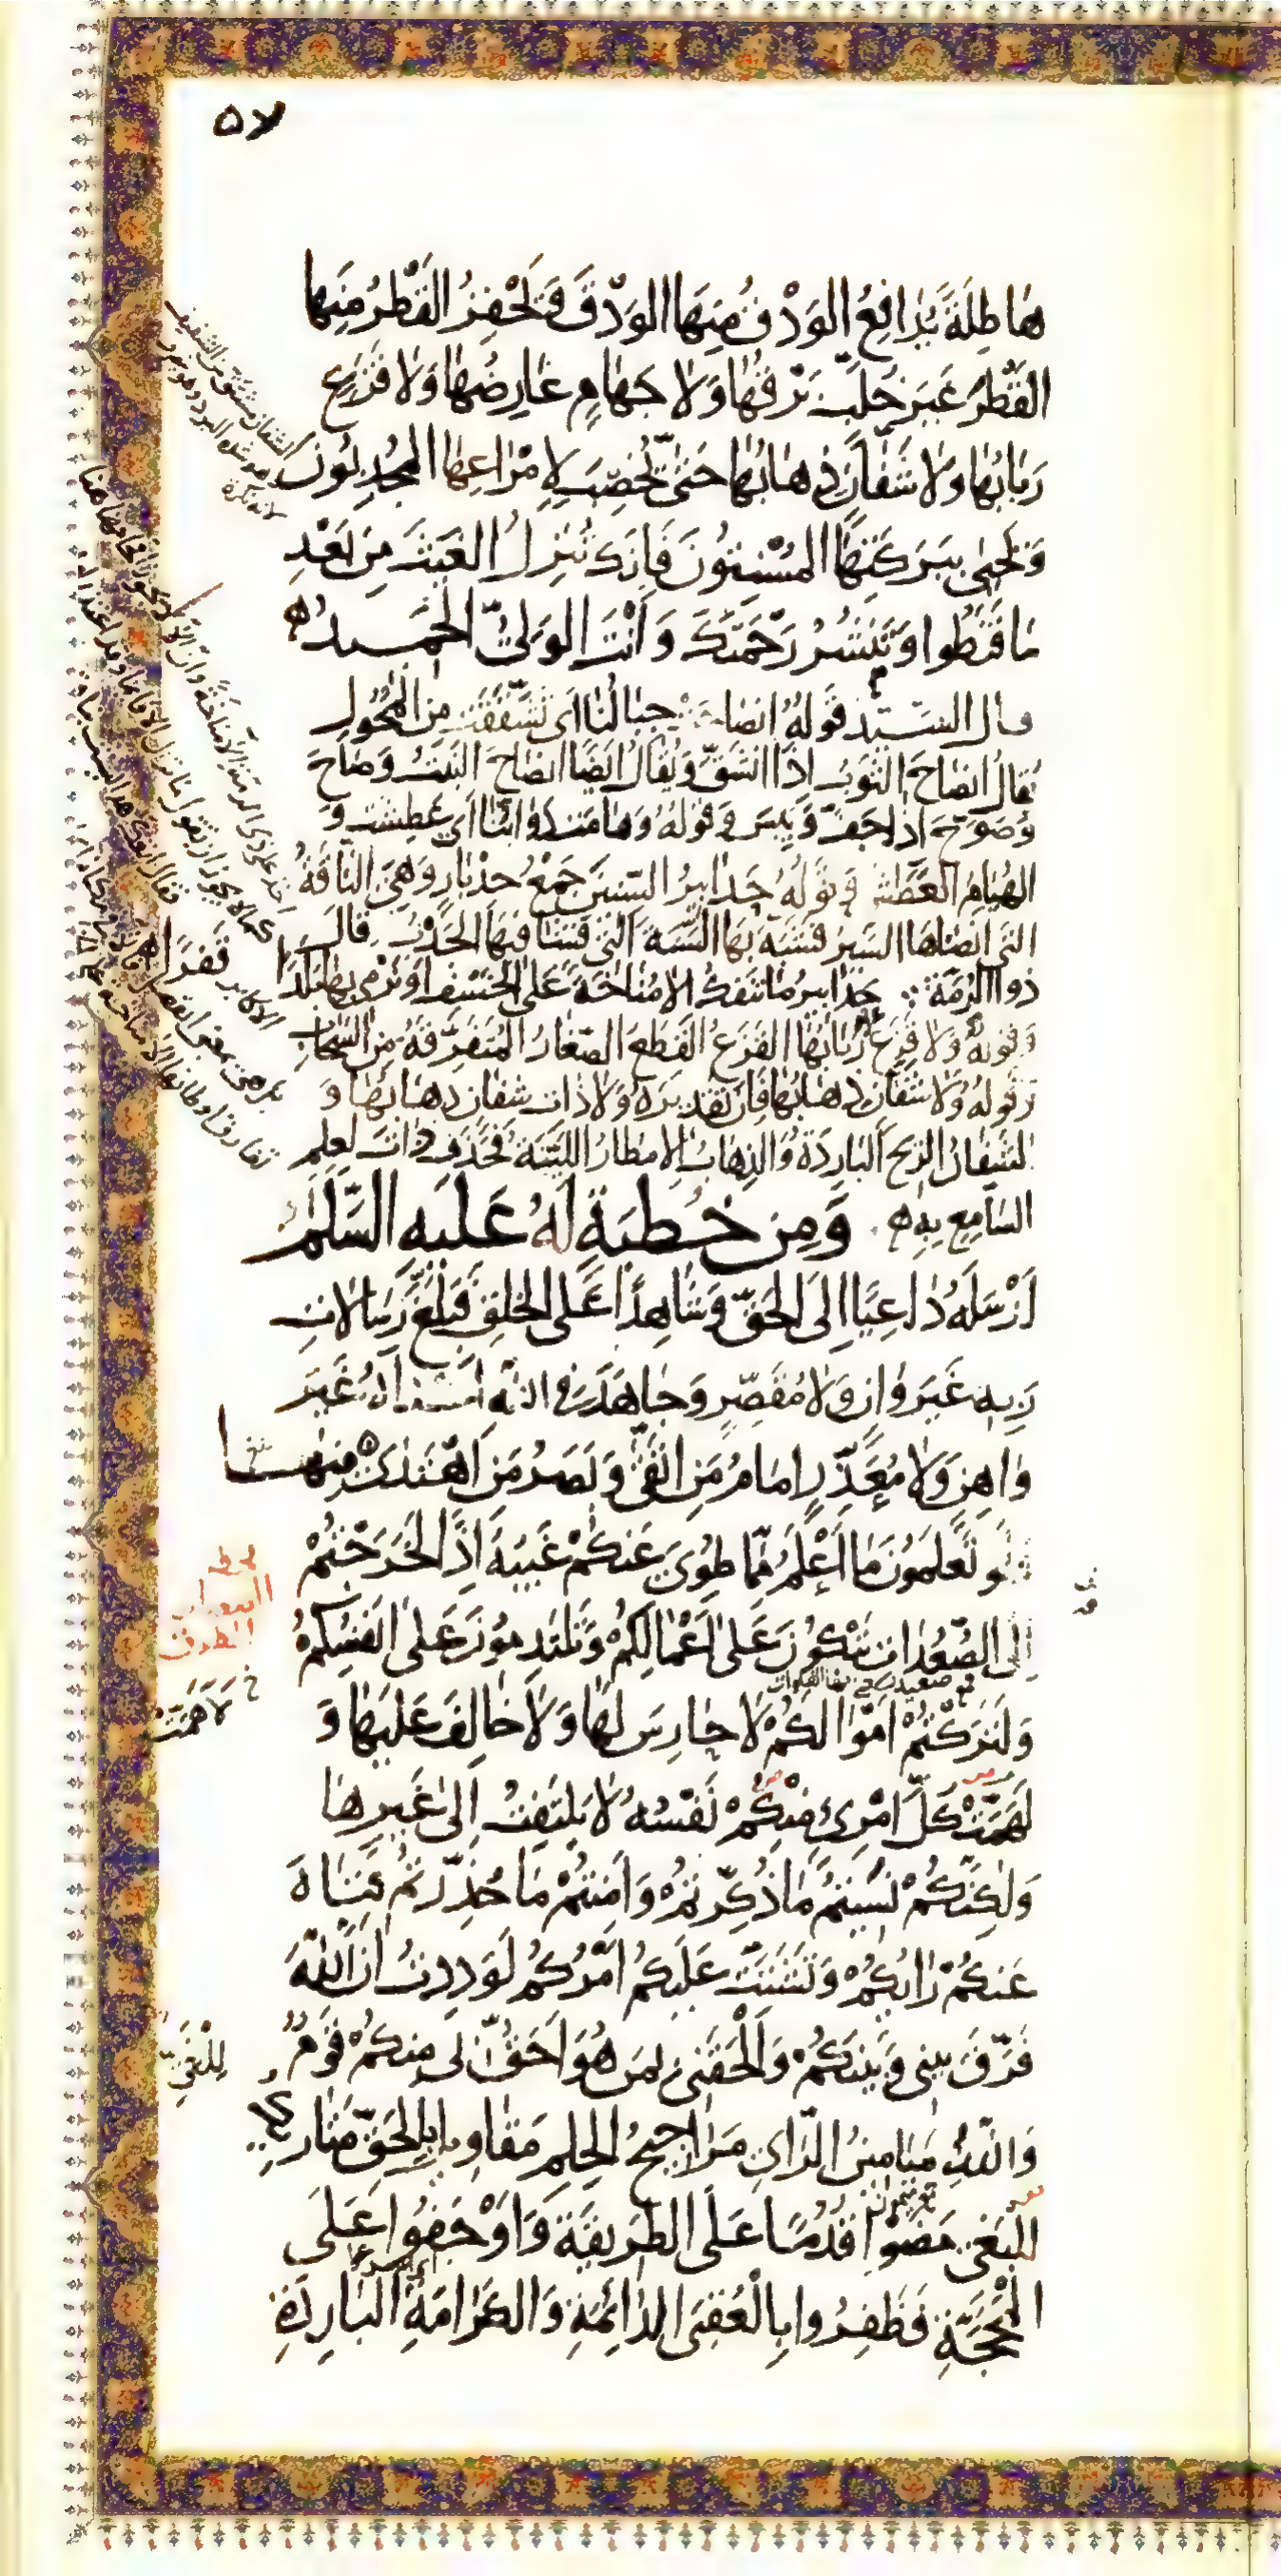 ٥٧
هَاطِلَةً يُدَافِعُ الوَدْقُ مِنهَا الوَدْقَ وَيَحْفِزُ القَطْرُ مِنهَا
القَطْرَ غَيرَ خُلَّبٍ بَرْقُهَا وَلَا جَهَامٍ عَارِضُهَا وَلَا قَزَعٍ
رَبَابُهَا وَلَا شَفَّانٍ ذِهَابُهَا حَتّى يُخصِبَ لِإِمْرَاعِهَا المجُدِبُونَ
وَيَحيٰى بِبَرَكَتِهَا المُسْنِتُونَ فَإِنّكَ تُنزِلُ الغَيثَ مِن بَعْدِ
مَا قَنَطُوا وَتَنشُرُ رَحْمَتَكَ وَأَنْتَ الوَلِيُّ الحَمِيدُ
قال السيّد قَولُهُ انصَاحَتْ جِبَالُنَا اى تَشَقَّقَت مِنَ المُحُولِ
يُقَالُ انصَاحَ الثَّوبُ إذا انشَقَّ وَيُقَالُ ايضًا انصَاحَ النَّبتُ وَصَاحَ
وَصَوَّحَ اذا جَفَّ وَيَبِسَ وَقَولُهُ وَهَامَت دَوابُّنَا أي عَطِشَت وَ
الهُيَامُ العَطَش وَقَولُهُ حَدَابِيرُ السّنينَ جَمْعُ حِدْبَارٍ وَهِيَ النَّاقَةُ
التي انضاهَا السَيرُ فَشَبّهَ بِهَا السَّنَةَ الّتي فَشَا فيهَا الجَدْبُ قالَ
ذو الرُّمَّة حَدَابيرُ مَا تَنفَكُّ إلّا مُنَاخَةً عَلَى الخَسْفِ اوْ نَرْمي بِهَا بَلَدًا قَفرًا
وَقولُهُ وَلَا قَزَعٍ رَبَابُهَا القَزَعُ القِطَعُ الصّغَارُ المُتَفَرِّقَةُ مِنَ السَّحَابِ
وَقَولُهُ وَلَا شَفَّانٍ ذِهَابُهَا فَإِنّ تَقدِيرَهُ وَلَا ذَاتِ شَفَّانٍ ذِهَابُهَا وَ
الشَّفَّانُ الرّيحُ البَارِدَةُ وَالذِّهَابُ الامطَارُ اللَّيّنَةُ فَحَذَفَ ذَاتَ لِعِلمِ
السَّامِعِ بِهِ وَمِن خُطبَةٍ لَهُ عَلَيهِ السَّلَام
أَرْسَلَهُ دَاعِيًا إِلَى الحَقِّ وَشَاهِدًا عَلَى الخَلقِ فَبَلَّغَ رِسَالَاتِ
رَبِّهِ غَيرَ وَانٍ وَلَا مُقَصِّرٍ وَجَاهَدَ فِي اللّه أعداءَهُ غَيرَ
وَاهِنٍ وَلَا مُعَذِّرٍ إمَامُ مَنِ اتَّقىٰ وَبَصَرُ مَنِ اهْتَدىٰ منها
وَلَو تَعلَمُونَ مَا أَعْلَمُ مِمَّا طُوِيَ عَنكُمْ غَيبُهُ إِذًا لَخَرَجْتُمْ
إلَى الصُّعُدَاتِ تَبْكُونَ عَلى أَعْمَالِكُمْ وَتَلتَدِمُونَ عَلى أَنفُسِكُمْ
وَلَتَرَكْتُمْ أَمْوَالَكُمْ لَا حَارِسَ لَهَا وَلَا خَالِفَ عَلَيهَا وَ
لَهَمَّتْ كُلَّ امْرِئٍ مِنْكُمْ نَفْسُهُ لَا يَلتَفِتُ إِلىٰ غَيرِهَا
وَلٰكِنَّكُمْ نَسيتُمْ مَا ذُكِّرتُمْ وَأَمِنتُمْ مَا حُذِّرتُمْ فَتَاهَ
عَنكُمْ رَأيُكُمْ وَتَشَتَّتَ عَلَيكُمْ أَمْرُكُمْ لَوَدِدتُ أَنَّ اللّٰهَ
فَرَّقَ بَيني وَبَينَكُمْ وَأَلْحَقَني بِمَن هُوَ أَحَقُّ بي مِنكُمْ قَومٌ
وَاللّهِ مَيَامينُ الرَّأيِ مَرَاجيحُ الحِلمِ مَقَاويلُ بِالحَقِّ مَتَاريكُ
لِلبَغيِ مَضَوْا قُدُمًا عَلَى الطَّريقَةِ وَأَوْجَفُوا عَلَى
المَحَجَّةِ فَظَفِرُوا بِالْعُقبَى الدَّائِمَةِ وَالكَرَامَةِ البَارِدَةِ
لَأَهَمَّتْ
لِلْبَغْيِ